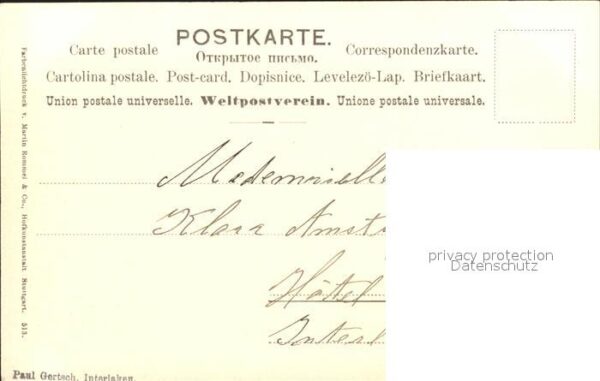 POSTKARTE.
Carte postale Открытое письмо. Correspondenzkarte.
Cartolina postale. Post-card. Dopisnice. Levelező-Lap. Briefkaart.
Union postale universelle. Weltpostverein. Unione postale universale.
Mademoiselle
Klara Amst
Hôtel
Interl
privacy protection
Datenschutz
Farbenlichtdruck v. Martin Rommel & Co., Hofkunstanstalt Stuttgart. 513.
Paul Gertsch, Interlaken.